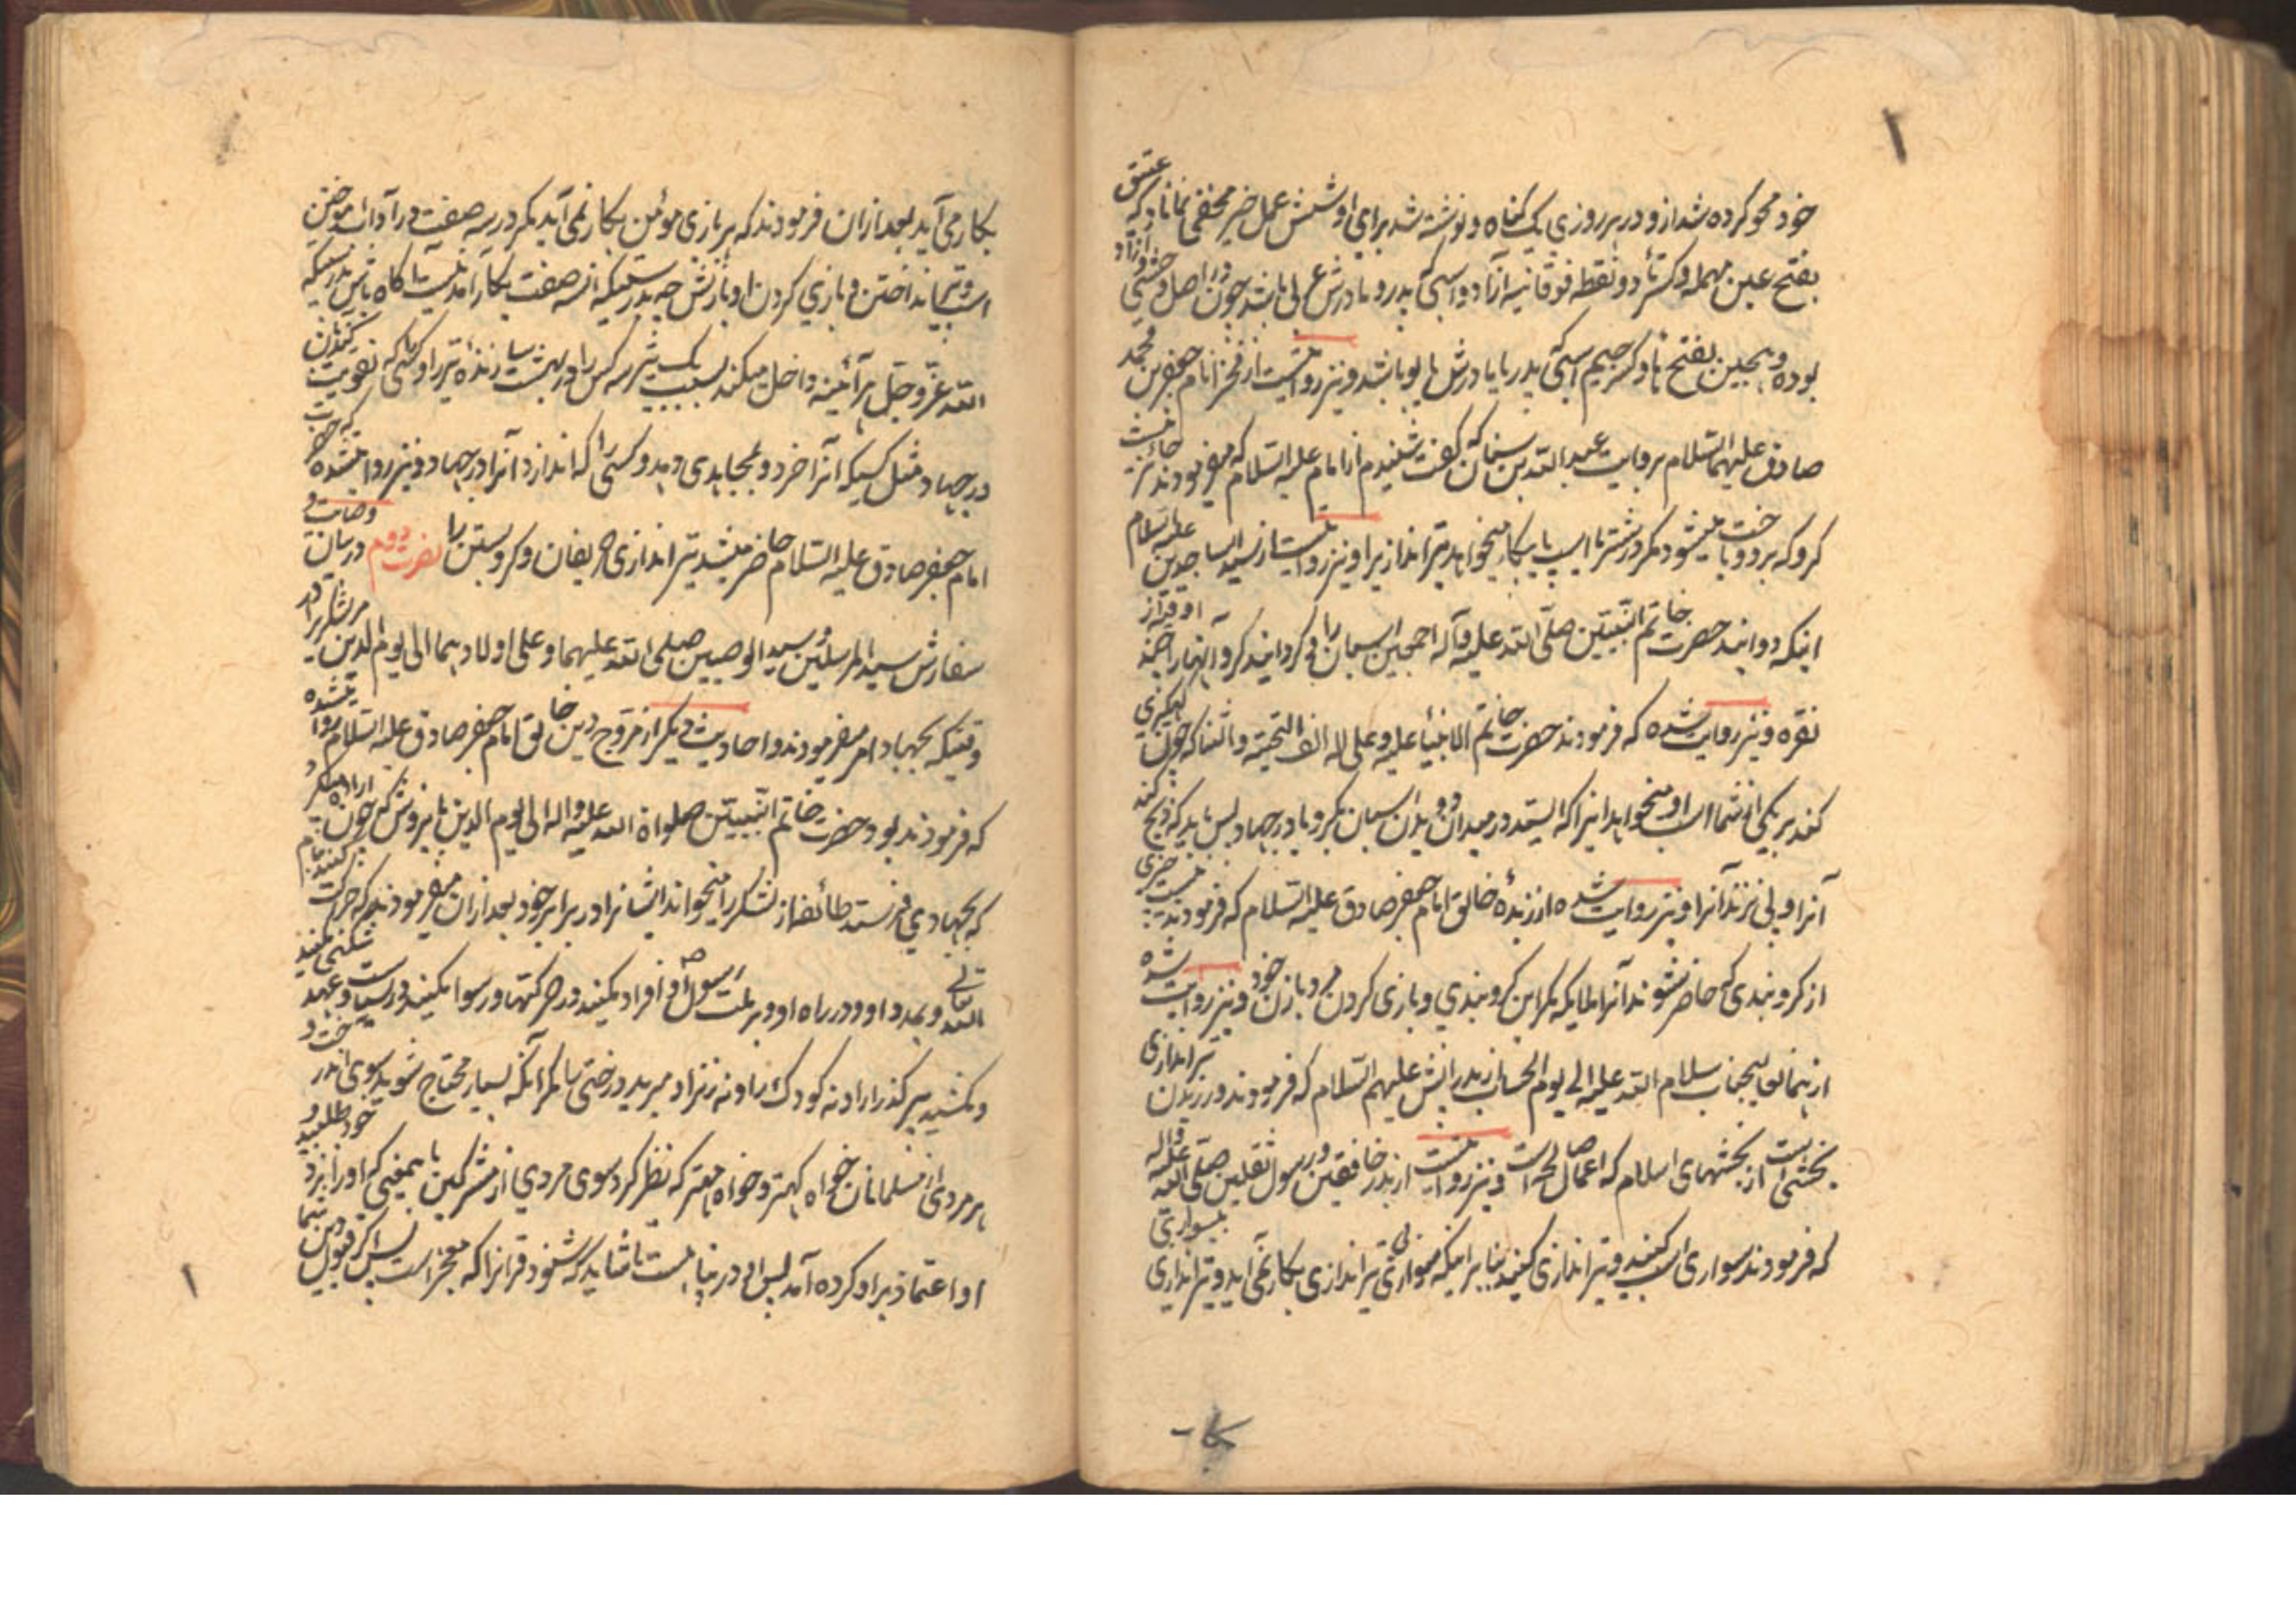 خود محو کرده شد ازو در هر روزی یک گناه و نوشته شد برای او شش عمل خیر مخفی نماناد که عتیق
بفتح عین مهمله و کسر تاء دو نقطه فوقانیه آزاد و اسپی که پدر و مادرش عربی باشد چون در اصل وحشی و آزاد
بوده و هجین بفتح ها و کسر جیم اسپی که پدر یا مادرش یابو باشد و نیز روایتست از فخر انام جعفر بن محمد
صادق علیهما السلام بروایت عبد الله بن سنان که گفت شنیدم از امام علیه السلام که میفرمودند جائز نیست
گرو که برد و باخت میشود مگر در شتر یا اسپ یا پیکار میخواهد تیراندازیرا و نیز روایتست از سید الساجدین علیه السلام
اینکه دوانیدند حضرت خاتم النبیین صلی الله علیه و آله اجمعین اسپان را و گردانیدند گرو آنها را چند اوقیه از
نقره و نیز روایت شده که فرمودند حضرت خاتم الانبیاء علیه و علی آله الف التحیة و الثنا که چون
کند بر یکی از شما اسپ او میخواهد اینرا که ایستد در میدان دوانیدن اسپان بگرو یا در جهاد پس باید که ذبح کند
آنرا و پی نزند آنرا و نیز روایت شده از زبدهٔ خالق امام جعفر صادق علیه السلام که فرمودند نیست چیزی
از گروبندی که حاضر شوند آنرا ملایکه مگر این گروبندی و بازی کردن مرد با زن خود و نیز روایت شده
از همان عالیجناب سلام الله علیه الی یوم الحساب از پدرانش علیهم السلام که فرمودند ورزیدن تیراندازی
بخشی است از بخشهای اسلام که اعمال صالحه است و نیز روایتست از بدر خافقین و رسول ثقلین صلی الله علیه و آله
که فرمودند سواری اسپ کنید و تیراندازی کنید بنابر اینکه سواری بی تیراندازی بکار نمی آید و تیراندازی بیسواری
بکا
بکار می آید بعد ازان فرمودند که هر بازی مومن بکار نمی آید مگر در سه صفت در آداب آموختن
اسپ و تیر انداختن و بازی کردن او با زنش چه بدرستیکه این سه صفت بکار آمدنیست آگاه باش بدرستیکه
الله عز و جل هر آئینه داخل میکند بسبب یک تیر سه کس را در بهشت سازندهٔ تیر را و کسی که تقویت کند بان
در جهاد مثل کسیکه آنرا خرد و بمجاهدی دهد و کسی را که اندازد آنرا در جهاد و نیز روایتشده که حضرت
امام جعفر صادق علیه السلام حاضر میشد تیراندازی حریفان و گرو بستن را نصرت دوم در بیان وصایت و
سفارش سید المرسلین و سید الوصیین صلی الله علیهما و علی اولادهما الی یوم الدین مر لشکر را
وقتیکه بجهاد امر میفرمودند و احادیث دیگر از مروج دین خالق امام جعفر صادق علیه السلام روایتشده
که فرمودند بود حضرت خاتم النبیین صلواة الله علیه و اله الی یوم الدین باینروش که چون ارادهٔ
که بجهادی فرستد طائفه از لشکر را میخواند ایشانرا در برابر خود بعد ازان میفرمودند که حرکت کنید بنام
الله تعالی و بمدد او و در راه او و بر ملت رسول او و افراد مکنید در حرکتها و رسوا مکنید
و مکشید پیر گذرا را و نه کودک را و نه زنرا و مبرید درختی را مگر آنکه بسیار محتاج شوید بسوی آن
هر مردی از مسلمانان خواه کهتر و خواه مهتر که نظر کرد سوی مردی از مشرکین باینمعنی که او را نزد خود طلبید و
او اعتماد بر او کرده آمد پس او در پناهست تا شاید که شنود قرآنرا که معجز است پس اگر قبول دین شما